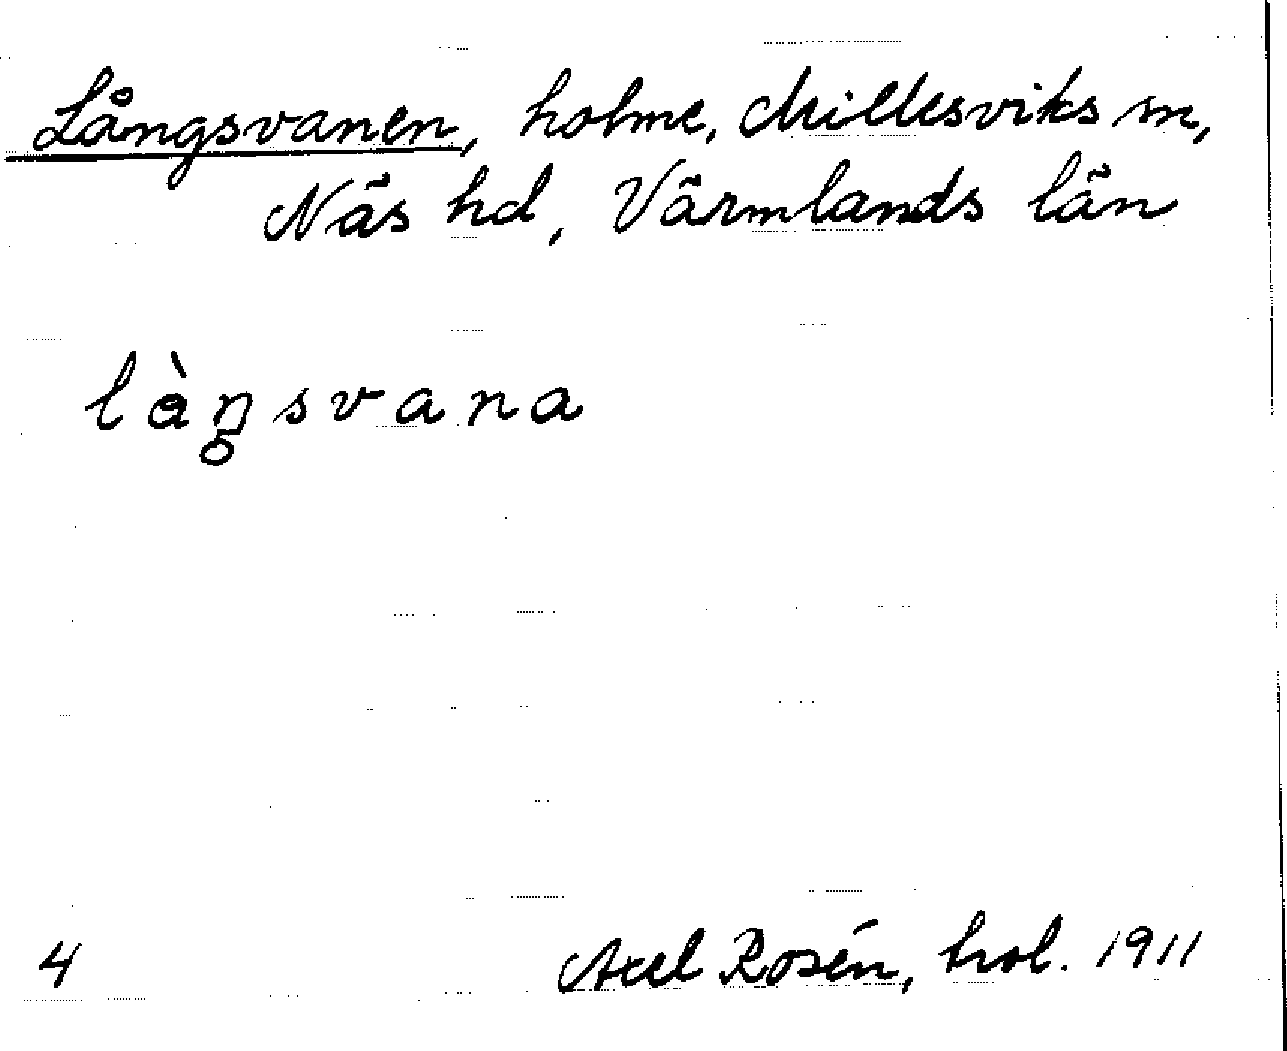 Långsvanen, holme, Millesviks sn,
Näs hd, Värmlands län
làŋsvana
4
Axel Rosén, hol. 1911